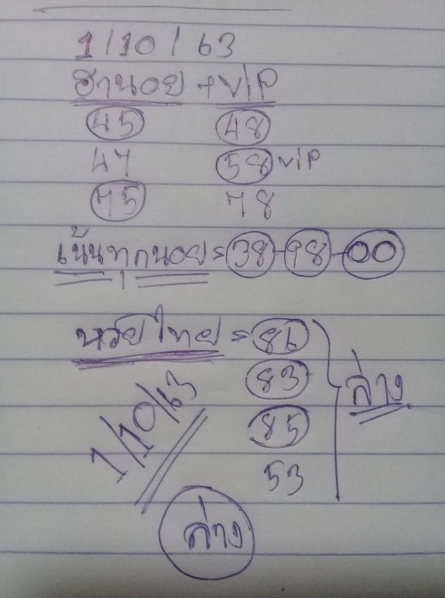 1/10/63
ฮานอย + VIP
45 48
47 58 VIP
75 78
เน้นทุกนอย = 38-98-00
หวยไทย = 86
83
85 ล่าง
53
1/10/63
ล่าง